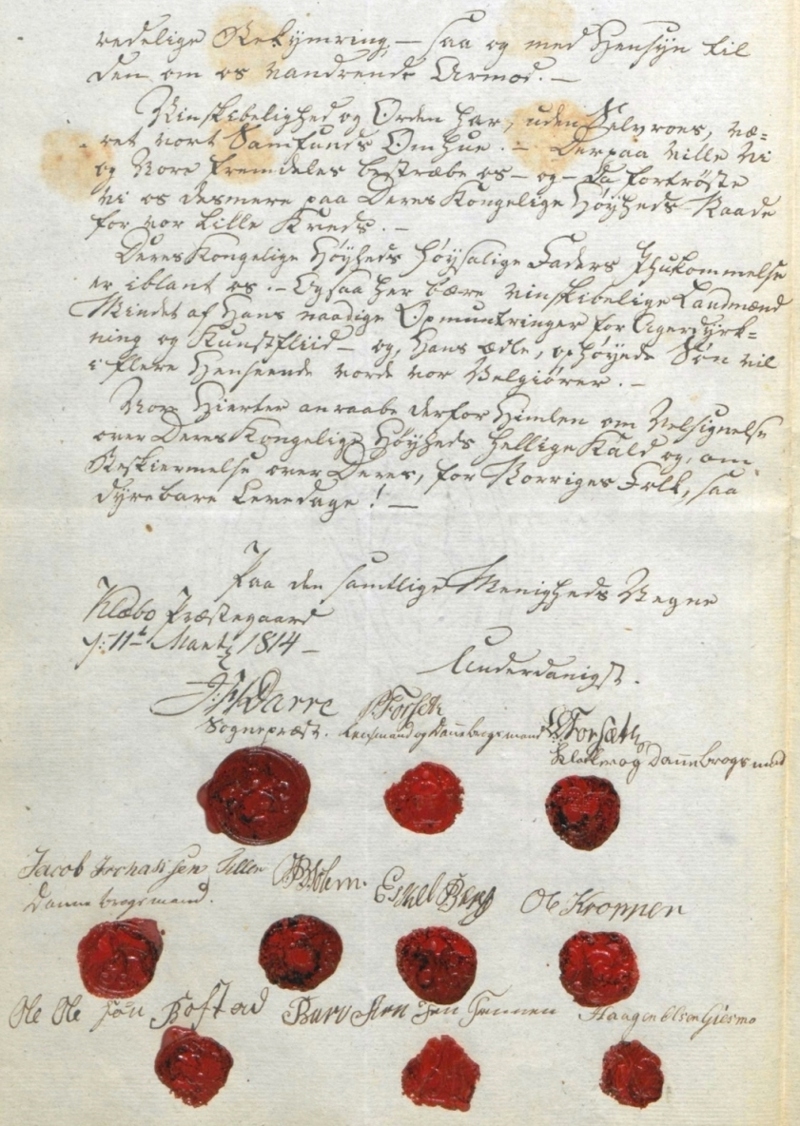 redelige Bekymring, — saa og med Hensyn til
den om os vandrende Armod. —
Vinskibelighed og Orden har, uden Selvroes, væ=
ret vort Samfunds Omhue. — Derpaa ville vi
og Vore fremdeles bestræbe os — og — da fortrøste
vi os desmere paa Deres Kongelige Høyheds Naade
for vor lille Kreds. —
Deres Kongelige Høyheds høysalige Faders Ihukommelse
er iblant os. — Ogsaa her bære vinskibelige Landmænd
Mindet af Hans naadige Opmuntringer for Agerdyrk=
ning og Kunstfliid — og, Hans ædle, ophøyede Søn vil
i flere Henseende vorde vor Velgiører. —
Vore Hierter anraabe derfor Himlen om Velsignelse
over Deres Kongelige Høyheds hellige Kald og, om
Beskiermelse over Deres, for Norriges Folk, saa
dyrebare Levedage! —
Paa den samtlige Menigheds Vegne
Klæbo Præstegaard
d: 11t Martz 1814 —
Underdanigst.
J: H Darre
Sognepræst.
P Forseth
Lensmand og Dannebrogsmand
Forsæth
Klokker og Dannebrogsmand
Jacob Jochatissen Tiller
Dannebrogsmand.
Holem
Eskel Berg
Ole Kroppen
Ole Ole Søn Bostad
Baro Sten Sen Tennen
Haagen Olsen Giesmo